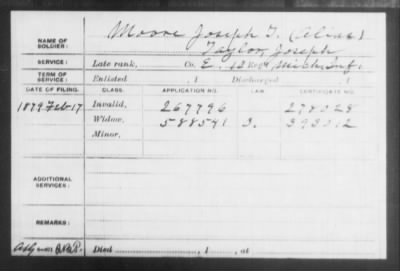 NAME OF SOLDIER: Moore Joseph T. (Alias)
Taylor, Joseph
SERVICE: Late rank, Co. E. 12 Reg't Mich. Inf.
TERM OF SERVICE: Enlisted , 1 Discharged , 1
DATE OF FILING. CLASS. APPLICATION NO. LAW. CERTIFICATE NO.
1879 Feb 17 Invalid, 267796 278028
Widow, 588541 3. 393012
Minor,
ADDITIONAL SERVICES:
REMARKS:
Died , 1 , at